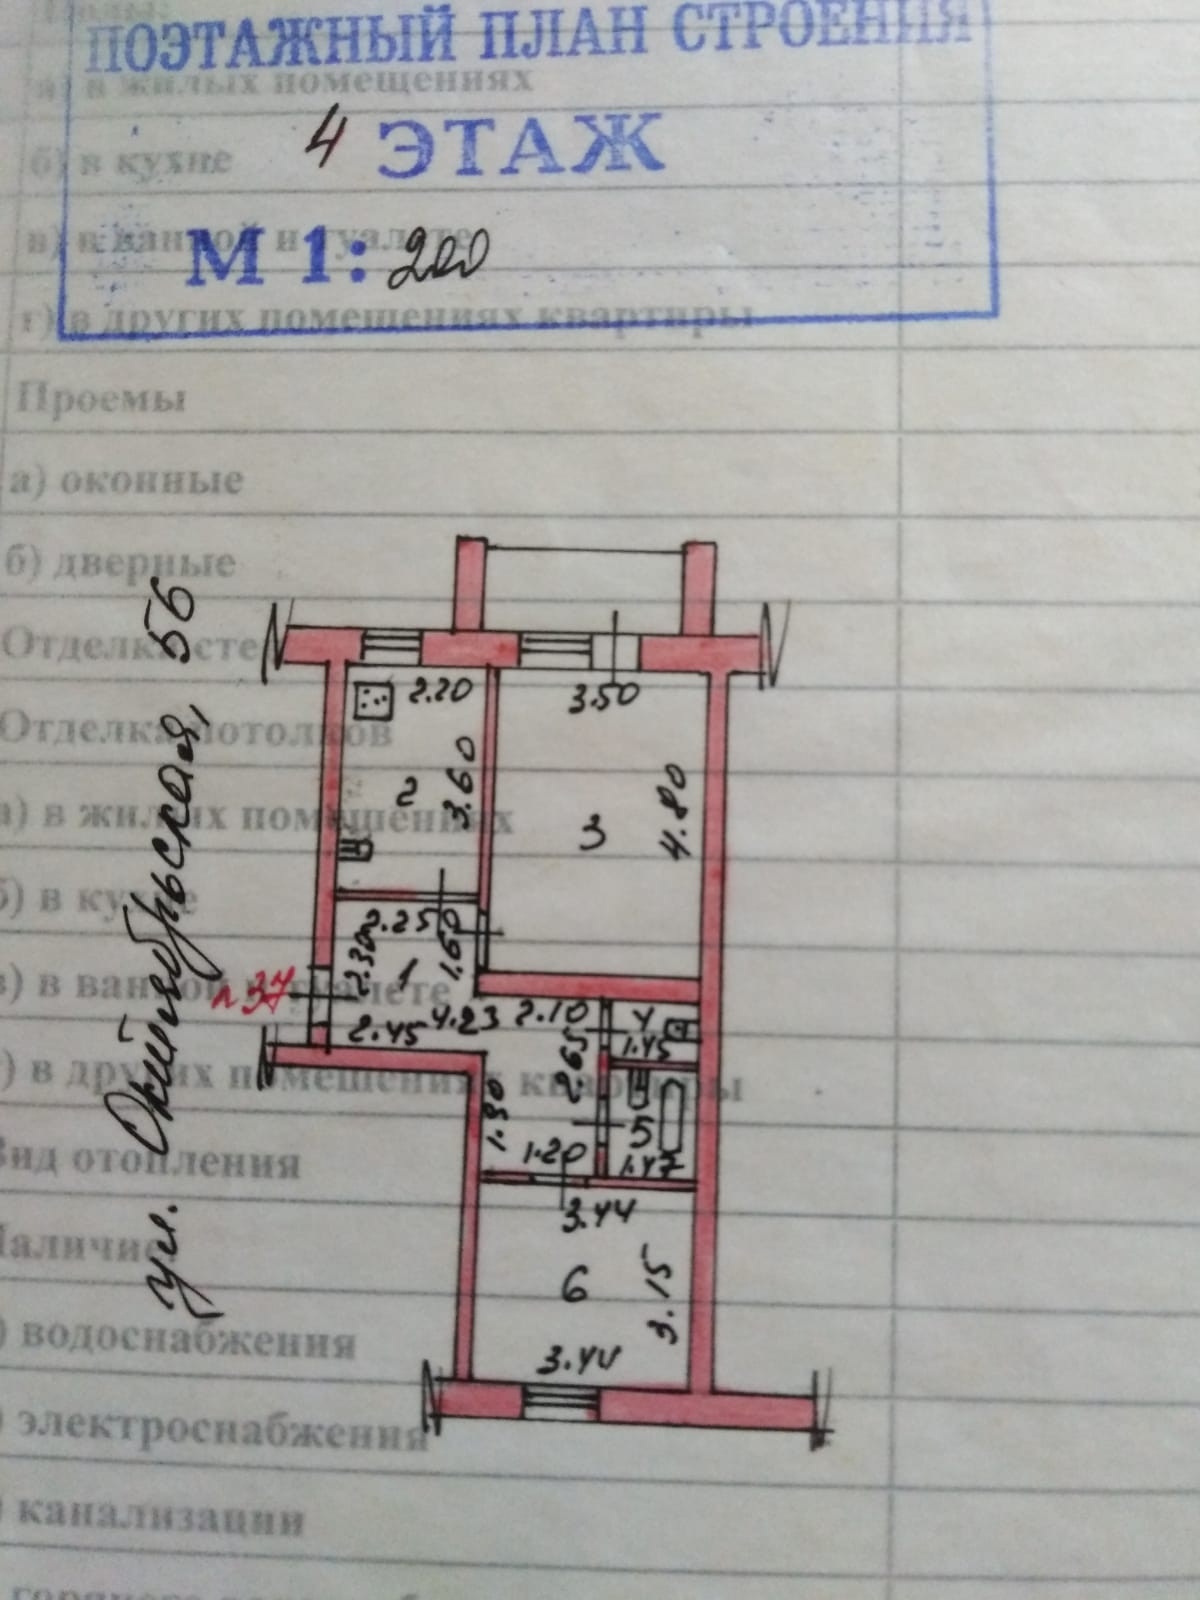 ПОЭТАЖНЫЙ ПЛАН СТРОЕНИЯ
а) в жилых помещениях
4 ЭТАЖ
б) в кухне
в) в ванной и туалете
М 1: 200
г) в других помещениях квартиры
Проемы
а) оконные
б) дверные
Отделка стен
Отделка потолков
а) в жилых помещениях
б) в кухне
в) в ванной и туалете
г) в других помещениях квартиры
Вид отопления
Наличие
) водоснабжения
) электроснабжения
) канализации
ул. Октябрьская, 56
2.20
3.50
2
3.60
3
4.80
2.25
1.60
2.30
1
2.45
4.23
2.10
4
1.45
2.65
1.90
5
1.20
1.47
3.44
6
3.15
3.44